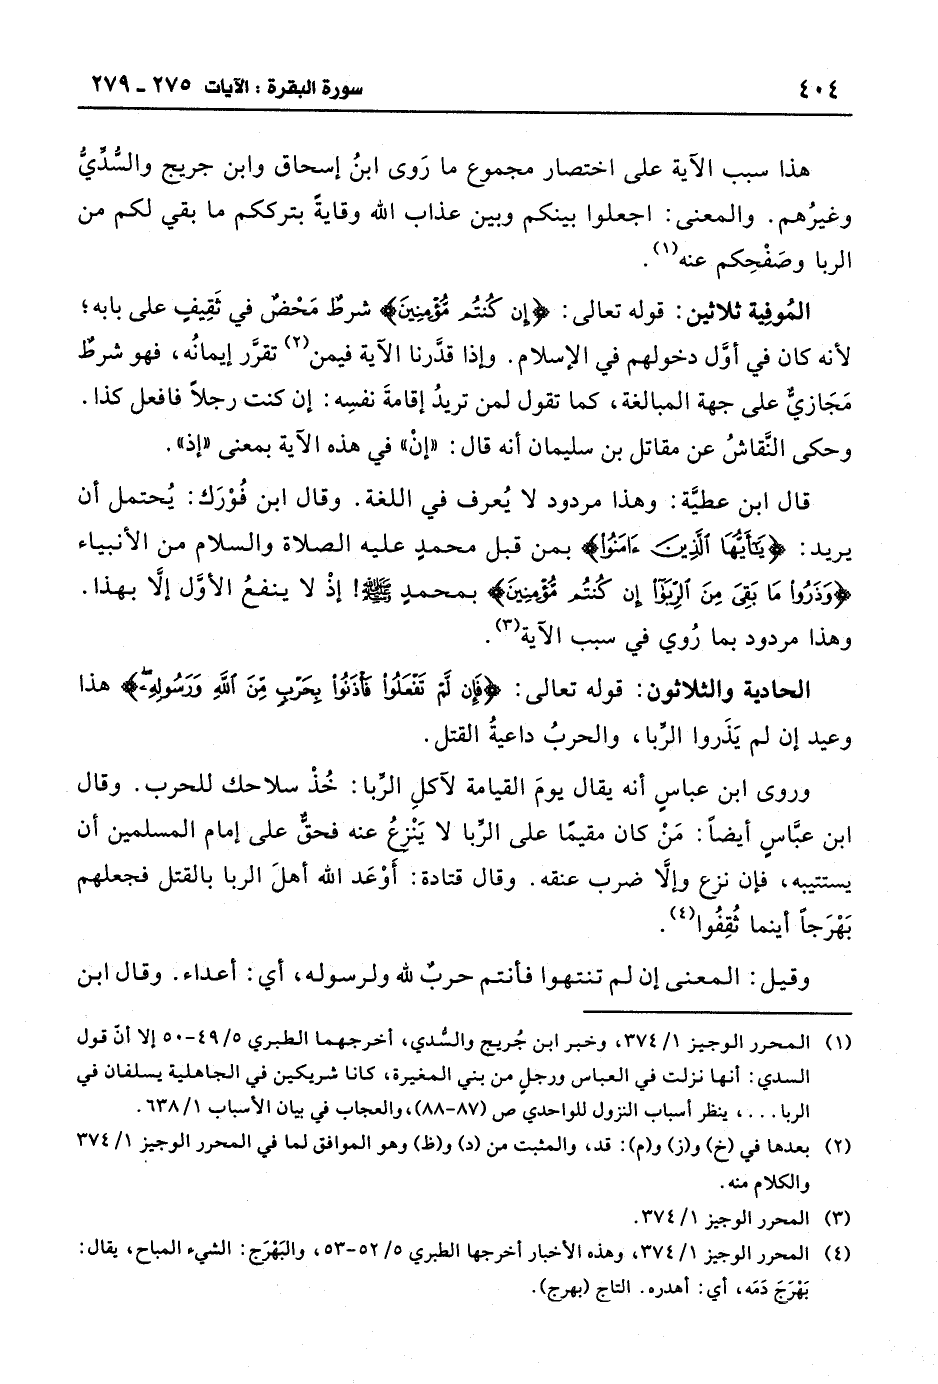 ٤٠٤
سورة البقرة : الآيات ٢٧٥ ـ ٢٧٩
هذا سبب الآية على اختصار مجموع ما رَوى ابنُ إسحاق وابن جريج والسُّدِّيُّ
وغيرُهم. والمعنى: اجعلوا بينكم وبين عذاب الله وقايةً بترككم ما بقي لكم من
الربا وصَفْحِكم عنه(١).
المُوفِية ثلاثين: قوله تعالى: ﴿إِن كُنتُم مُّؤْمِنِينَ﴾ شرطٌ مَحْضٌ في ثَقِيفٍ على بابه؛
لأنه كان في أوَّل دخولهم في الإسلام. وإذا قدَّرنا الآية فيمن(٢) تقرَّر إيمانُه، فهو شرطٌ
مَجَازيٌّ على جهة المبالغة، كما تقول لمن تريدُ إقامةَ نفسِه: إن كنت رجلاً فافعل كذا.
وحكى النَّقاشُ عن مقاتل بن سليمان أنه قال: «إنْ» في هذه الآية بمعنى «إذ».
قال ابن عطيَّة: وهذا مردود لا يُعرف في اللغة. وقال ابن فُورَك: يُحتمل أن
يريد: ﴿يَٰٓأَيُّهَا ٱلَّذِينَ ءَامَنُوا۟﴾ بمن قبل محمدٍ عليه الصلاة والسلام من الأنبياء
﴿وَذَرُوا۟ مَا بَقِىَ مِنَ ٱلرِّبَوٰٓا۟ إِن كُنتُم مُّؤْمِنِينَ﴾ بمحمدٍ ﷺ! إذْ لا ينفعُ الأوَّل إلَّا بهذا.
وهذا مردود بما رُوي في سبب الآية(٣).
الحادية والثلاثون: قوله تعالى: ﴿فَإِن لَّمْ تَفْعَلُوا۟ فَأْذَنُوا۟ بِحَرْبٍ مِّنَ ٱللَّهِ وَرَسُولِهِۦ﴾ هذا
وعيد إن لم يَذَروا الرِّبا، والحربُ داعيةُ القتل.
وروى ابن عباسٍ أنه يقال يومَ القيامة لآكلِ الرِّبا: خُذْ سلاحك للحرب. وقال
ابن عبَّاسٍ أيضاً: مَنْ كان مقيمًا على الرِّبا لا يَنْزِعُ عنه فحقٌّ على إمام المسلمين أن
يستتيبه، فإن نزع وإلَّا ضرب عنقه. وقال قتادة: أَوْعَد الله أهلَ الربا بالقتل فجعلهم
بَهْرَجاً أينما ثُقِفُوا(٤).
وقيل: المعنى إن لم تنتهوا فأنتم حربٌ لله ولرسوله، أي: أعداء. وقال ابن
(١) المحرر الوجيز ١/ ٣٧٤، وخبر ابن جُريج والسُّدي، أخرجهما الطبري ٥/ ٤٩-٥٠ إلا أنّ قول
السدي: أنها نزلت في العباس ورجلٍ من بني المغيرة، كانا شريكين في الجاهلية يسلفان في
الربا...، ينظر أسباب النزول للواحدي ص (٨٧-٨٨)، والعجاب في بيان الأسباب ١/ ٦٣٨.
(٢) بعدها في (خ) و(ز) و(م): قد، والمثبت من (د) و(ظ) وهو الموافق لما في المحرر الوجيز ١/ ٣٧٤
والكلام منه.
(٣) المحرر الوجيز ١/ ٣٧٤.
(٤) المحرر الوجيز ١/ ٣٧٤، وهذه الأخبار أخرجها الطبري ٥/ ٥٢-٥٣، والبَهْرَج: الشيء المباح، يقال:
بَهْرَجَ دَمَه، أي: أهدره. التاج (بهرج).